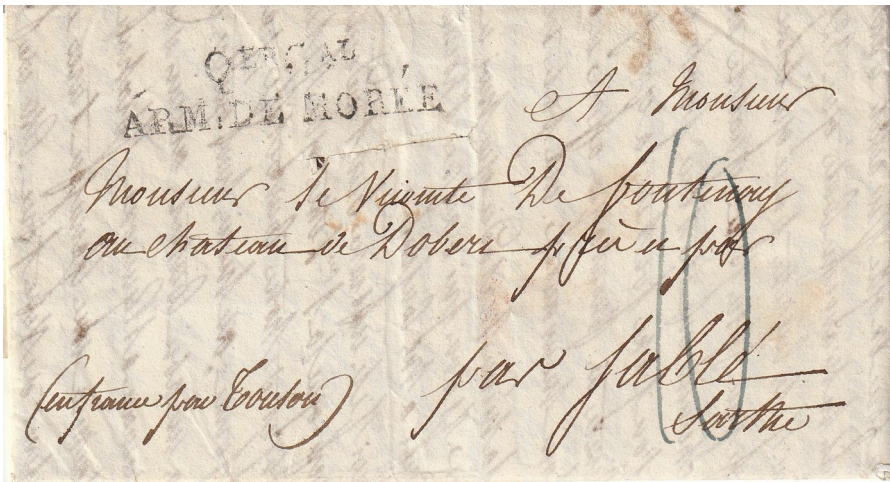 QER GAL
ARM. DE MORÉE
A Monsieur
Monsieur le Vicomte De fontenay
au chateau de Dobert par
par Sablé
Sarthe
(en france par Toulon)
10